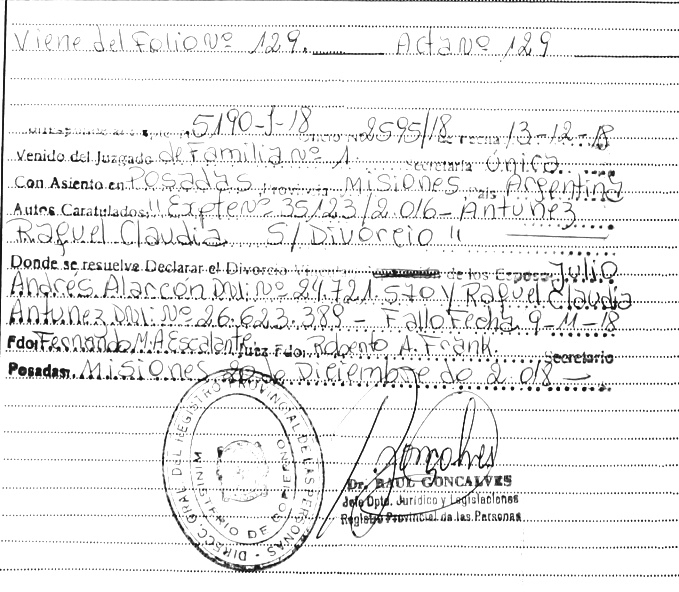 Viene del Folio Nº 129. Acta Nº 129
5190-J-18 2595/18 de Fecha 13-12-18
Venido del Juzgado de Familia Nº 1. Secretaria Única
Con Asiento en Posadas Provincia Misiones Pais Argentina
Autos Caratulados: "Expte Nº 35123/2016- Antunez
Raquel Claudia S/Divorcio"
Donde se resuelve Declarar el Divorcio Vincular de los Esposos: Julio
Andrés Alarcón DNI: Nº 24.721.570 y Raquel Claudia
Antunez DNI: Nº 26.623.389 - Fallo Fecha 9-11-18
Fdo: Fernando M.A Escalante. Juez Fdo: Roberto A. Frank. Secretario
Posadas, Misiones 20 de Diciembre de 2018 -
DIRECC. GRAL DEL REGISTRO PROVINCIAL DE LAS PERSONAS
MINISTERIO DE GOBIERNO
Goncalves
Dr. RAUL GONCALVES
Jefe Dpto. Jurídico y Legislaciones
Registro Provincial de las Personas